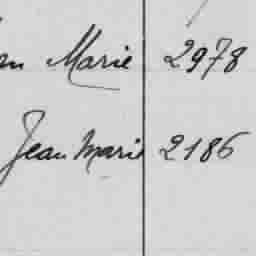 Marie 2978
Jean Marie 2186